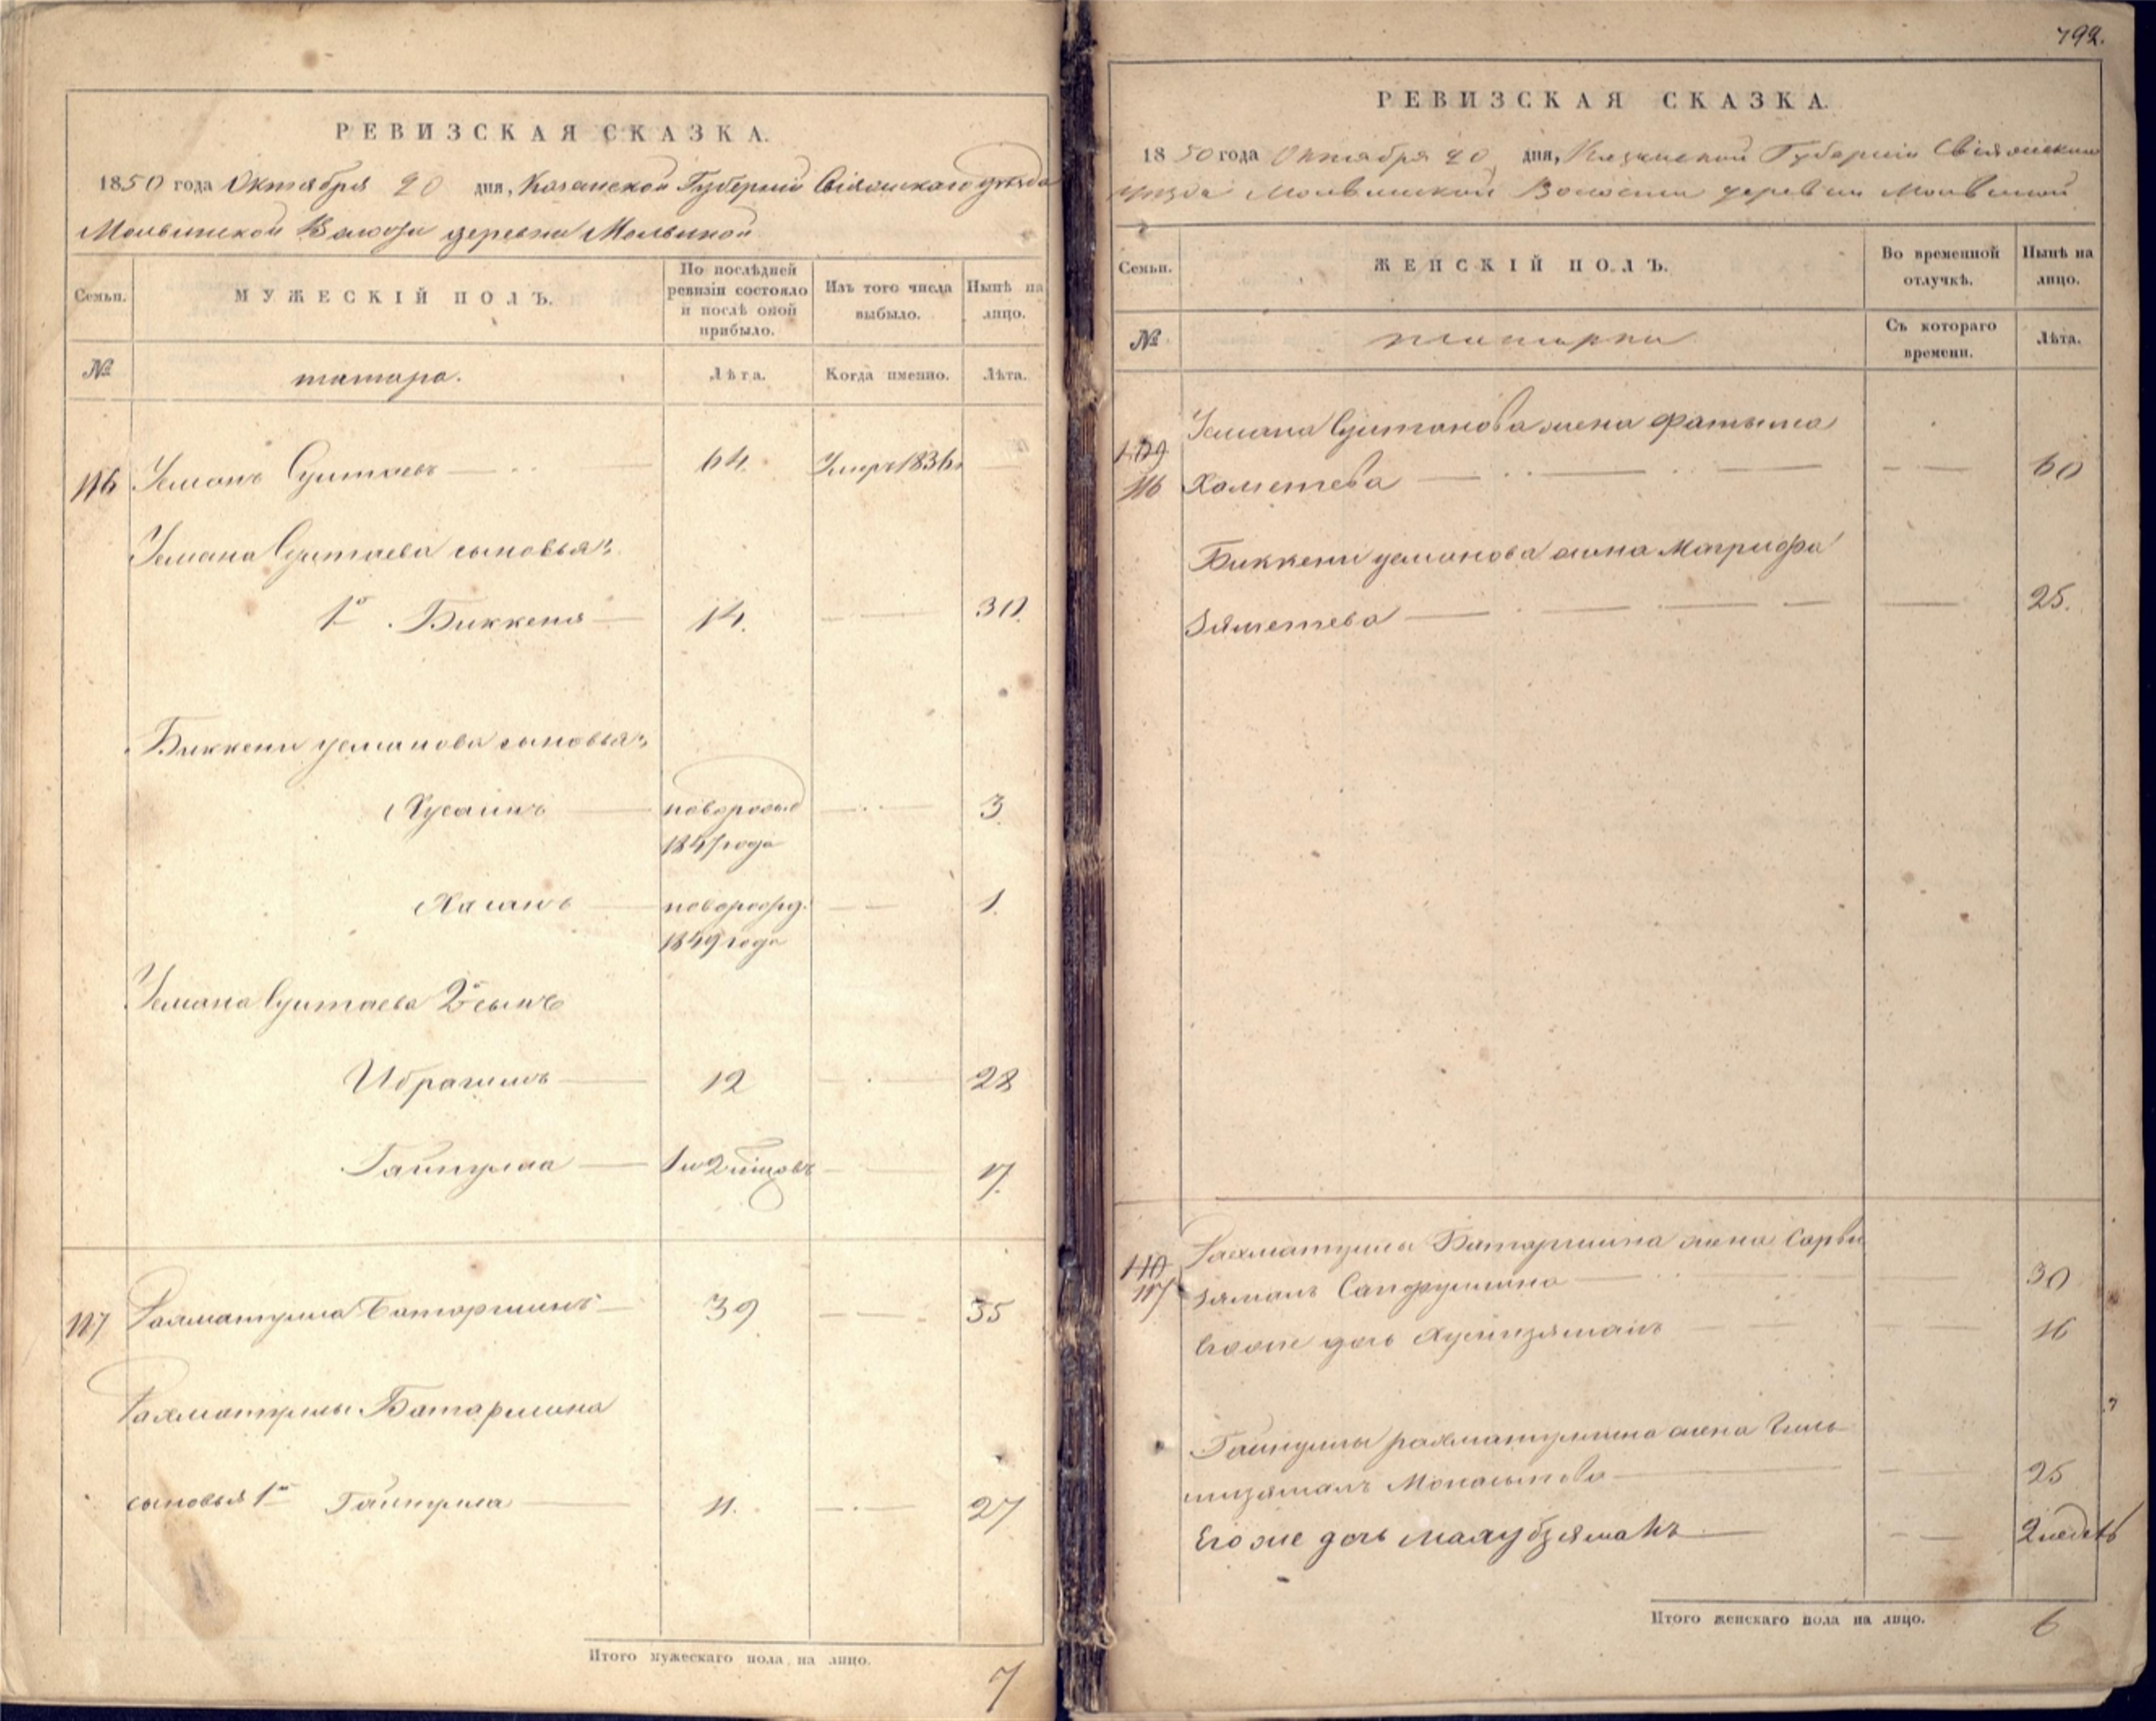 РЕВИЗСКАЯ СКАЗКА.
1850 года Октября 20 дня, Казанской Губерніи Свіяжскаго уѣзда
Молвинской Волости деревни Молвиной
Семьи.
МУЖЕСКІЙ ПОЛЪ.
По послѣдней
ревизіи состояло
и послѣ оной
прибыло.
Изъ того числа
выбыло.
Нынѣ на
лицо.
№
татара.
Лѣта.
Когда именно.
Лѣта.
116 Усманъ Суитаевъ 64. Умеръ 1836
Усмана Суитаева сыновья:
1й Биккеня 14. 30.
Биккени усманова сыновья:
Хусаинъ новорожд 3
1847 года
Хасанъ новорожд. 1.
1849 года
Усмана Суитаева 2й сынъ
Ибрагимъ 12 28
Гайнулла 17.
117 Рахматулла Батаршинъ 39 55
Рахматуллы Батаршина
сыновья 1й Гайнулла 11. 27
Итого мужескаго пола на лицо.
7
792.
РЕВИЗСКАЯ СКАЗКА.
1850 года Октября 20 дня, Казанской Губерніи Свіяжскаго
уѣзда Молвинской Волости деревни Молвиной
Семьи.
ЖЕНСКІЙ ПОЛЪ.
Во временной
отлучкѣ.
Нынѣ на
лицо.
№
татарки
Съ котораго
времени.
Лѣта.
Усмана жена Фатыма
109
116 Хаметева 60
Биккени усманова жена Магрифа
Зяметева 25.
Рахматуллы Батаршина жена Сарби
110
117 зямалъ Сайфуллина 30
Его же дочь Хуснизямалъ 16
Гайнуллы рахматуллина жена
25
Его же дочь Махубзямалъ
Итого женскаго пола на лицо.
6